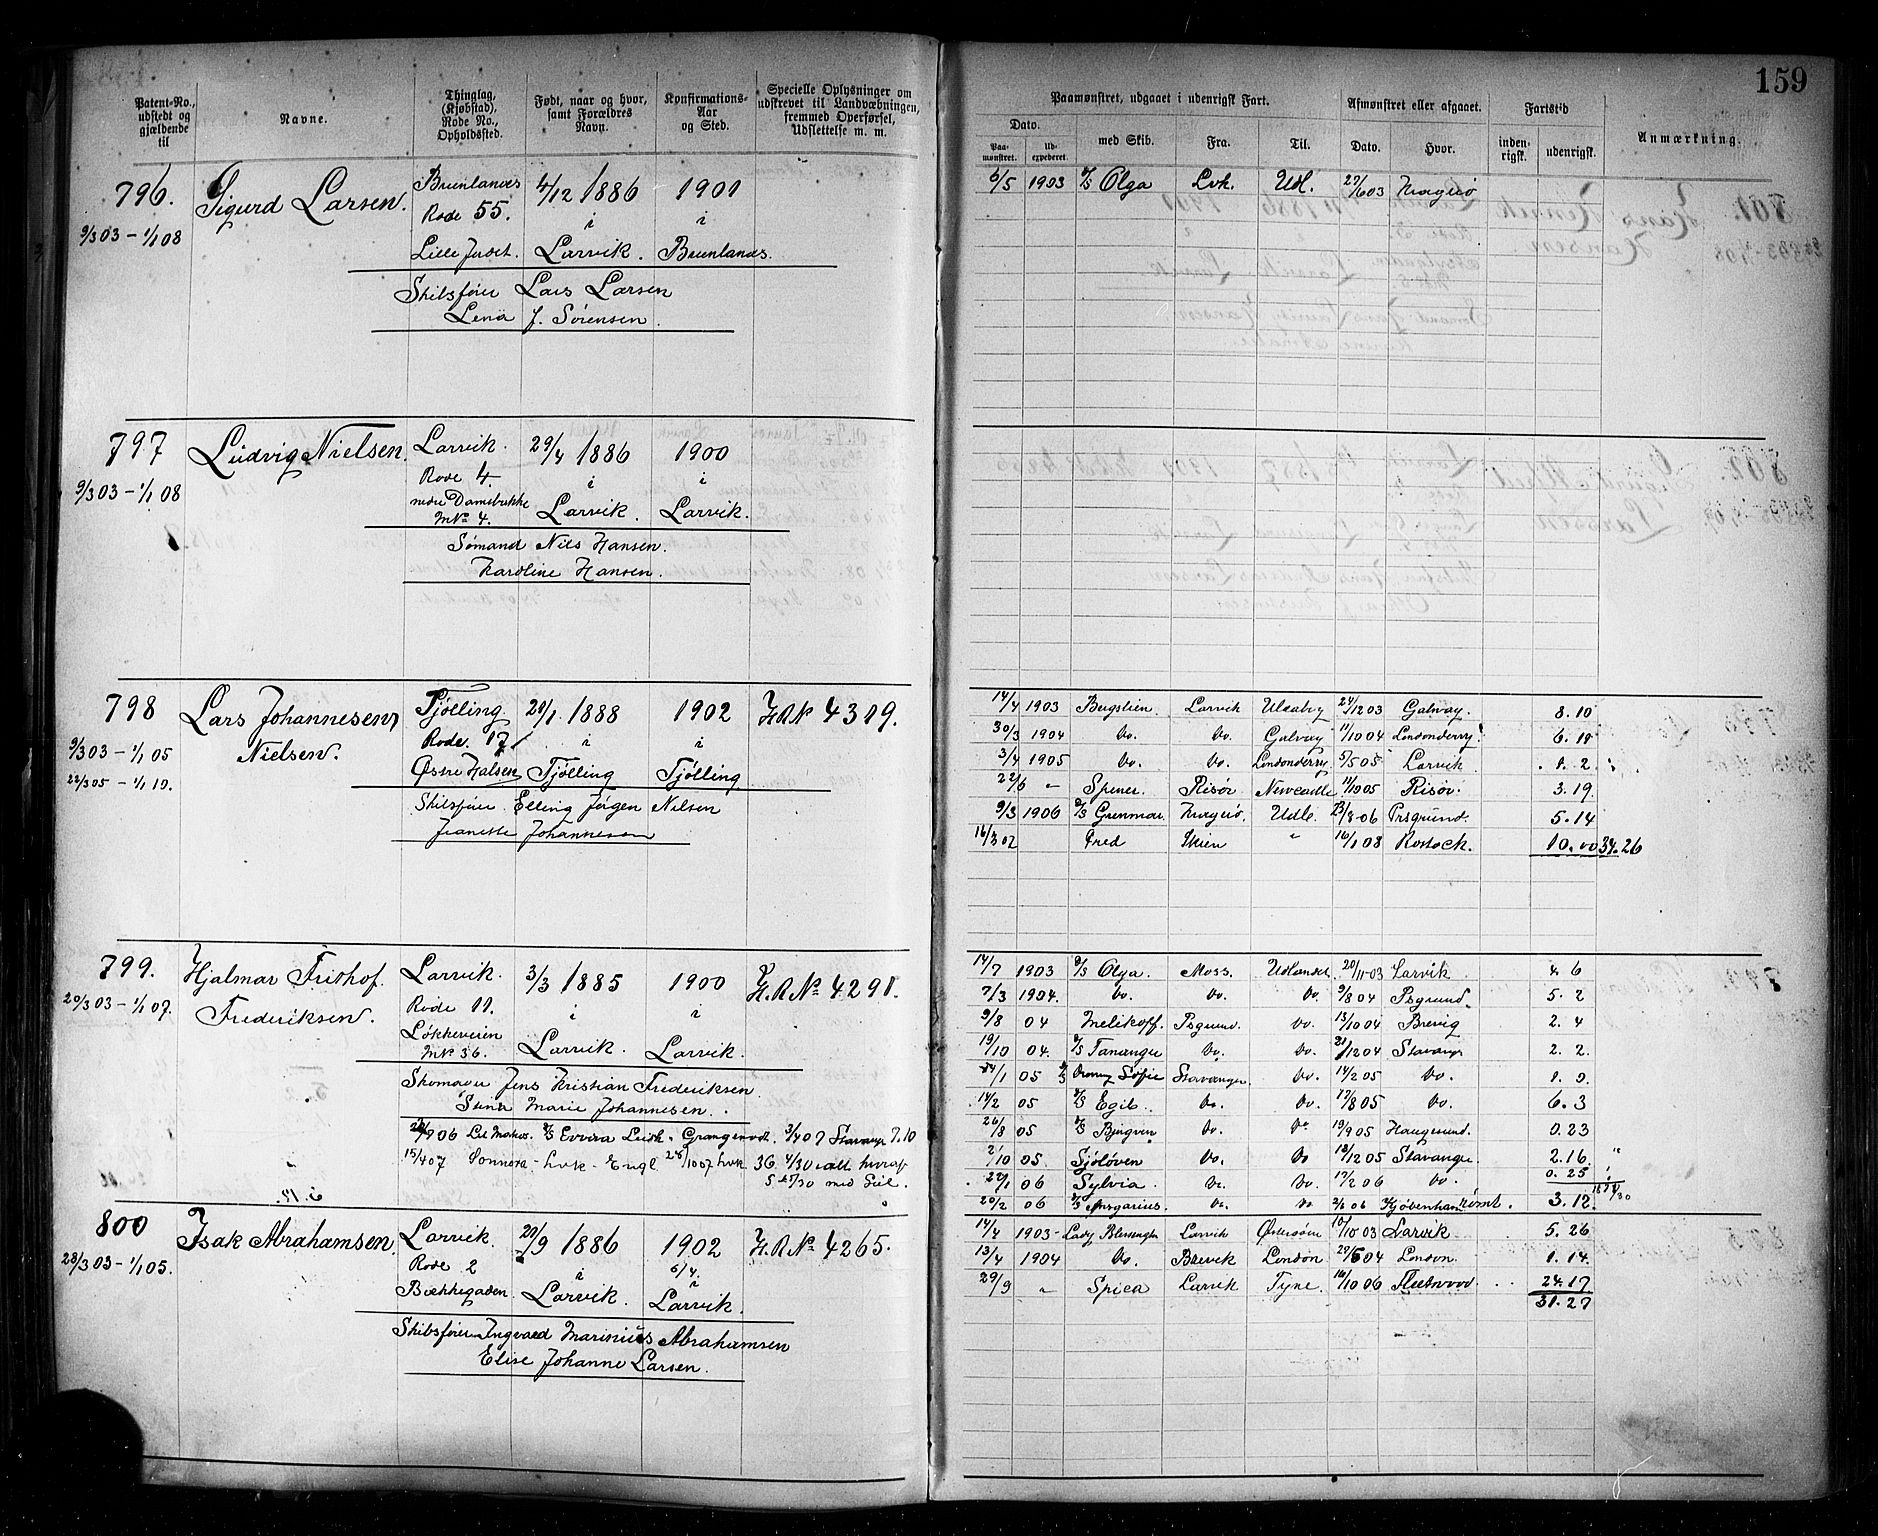 159
Patent-No., udstedt og gjældende til
Navne.
Thinglag, (Kjøbstad), Rode No., Opholdssted.
Født, naar og hvor, samt Forældres Navn.
Konfirmations-Aar og Sted.
Specielle Oplysninger om udskrevet til Landværbningen, fremmed Overførsel, Udslettelse m. m.
Paamønstret, udgaaet i udenrigsk Fart.
Afmønstret eller afgaaet.
Fartstid
Anmærkning.
Dato.
med Skib.
Fra.
Til.
Dato.
Hvor.
inden-rigsk.
udenrigsk.
Paa-mønstret.
Ud-expederet.
796. Sigurd Larsen. Brunlanæs 4/12 1886 1901
Rode 55. i i
9/3 03 - 1/1 08
Lille Jordet. Larvik. Brunlanæs.
Skibsfører Lars Larsen
Lena f. Sørensen.
6/5 1903 D/S Olga Lvk. Udl. 27/6 03 Kragerø
797 Ludvig Nielsen. Larvik. 29/4 1886 1900
Rode 4. i i
9/3 03 - 1/1 08
nedre Damsbakke
M№ 4. Larvik. Larvik.
Sømand Nils Hansen.
Karoline Hansen.
798 Lars Johannesen Tjølling 20/1 1888 1902 H.R.№ 4309.
9/3 03 - 1/1 05 Nielsen. Rode. 17 i i
22/3 05 - 1/1 10. Østre Halsen Tjølling Tjølling
Skibsfører Elling Jørgen Nilsen
Jeanette Johannesen
14/4 1903 Bugstien. Larvik 24/12 03 Galway. 8.10
30/3 1904 Do. Do. Galway 11/10 04 Londonderry 6.10
3/4 1905 Do. Do. Londonderry 5/5 05 Larvik 1.2
22/6 " Spener. Risør Newcastle 11/10 05 Risør. 3.19
9/3 1906 D/S Grenmar Kragerø, Udl. 23/8 06 Prsgrund. 5.14
16/3 07 Fred Skien " 16/1 08 Rostock. 10.00 34.26
799. Hjalmar Frithof Larvik. 3/3 1885 1900 H.R.№ 4291.
20/3 03 - 1/1 07. Frederiksen. Rode 11. i i
Løkkeveien
M№ 36. Larvik. Larvik.
Skomager Jens Kristian Frederiksen
Stina Marie Johannesen.
15/4 07 Sonnera - Lvik - Engl 10 07 Lvik 36
14/7 1903 D/S Olga. Moss. Udlandet 20/11-03 Larvik 4.6
7/3 1904. Do. Do. Do. 9/8 04 Psgrund. 5.2
9/8 04 Melikoff. Psgrund. Do. 13/10 04 Brevig 2.4
19/10 04. D/S Tananger Do. Do. 21/12 04 Stavanger 2.2.
24/1 05 Dronng Sofie Stavanger. Do. 14/2 05 Do.
14/2 05 D/S Egil. Do. Do. 17/8 05 Do. 6.3
26/8 05 D/S Bjørgvin Do. Do 19/9 05 Haugesund. 0.23
2/10 05. Sjøløven Do. Do 18/12 05 Stavanger 2.16.
22/1 06 Sylvia. Do. Do. 17/2 06 Do. 0.25
20/2 06 D/S Ansgarius. Do. Do 2/6 06 Kjøbenhavn rømt. 3.12.
800 Isak Abrahamsen. Larvik. 20/9 1886 1902 H.R.№ 4265.
28/3 03 - 1/1 05. Rode 2 i 6/4. i
Bækkegaden. Larvik. Larvik.
Skibsfører Ingvald Marinius Abrahamsen
Elise Johanne Larsen.
14/4 1903 - Lady Blessington Larvik Østersøen 10/10 03 Larvik 5.26
13/4 1904 Do. Brevik London 29/5 04 London 1.14.
29/9 " Spica Larvik Tyne. 16/10 06 Fleetwood 24.17
31.27